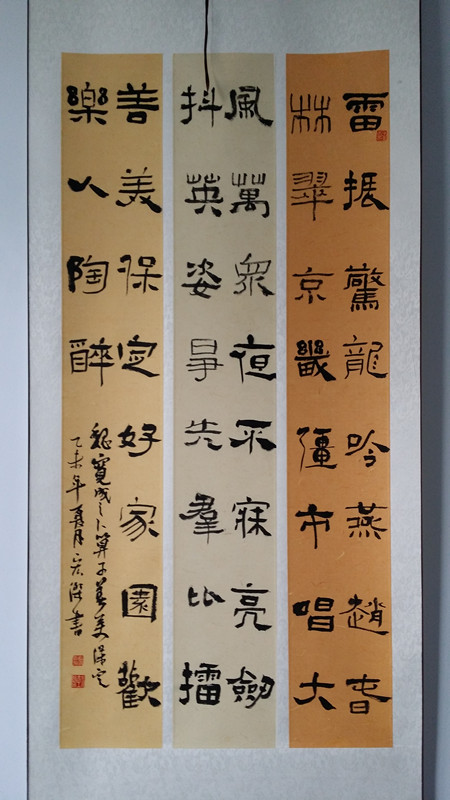 雷振驚龍吟燕趙春
林翠京畿彊市唱大
風萬眾夜不寐亮劍
抖英姿爭先羣比擂
善美保定好家園歡
樂人陶醉
魏寬成之卜算子善美保定
乙未年夏月宏書